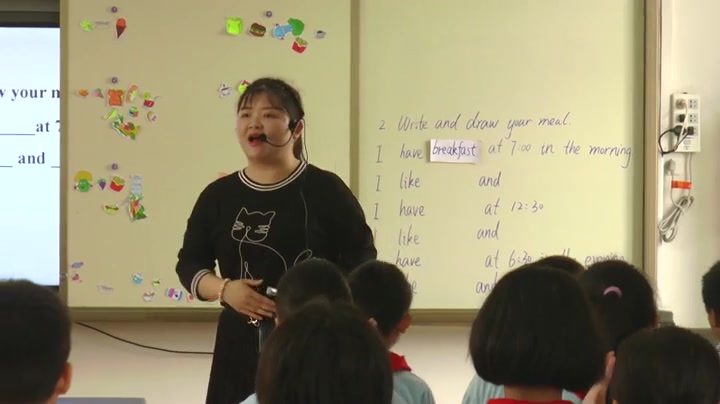 w your m
at 7
and
2 Write and draw your meal.
I have breakfast at 7:00 in the morning
I like and
I have at 12:30
I like and
have at 6:30 in the evening
and